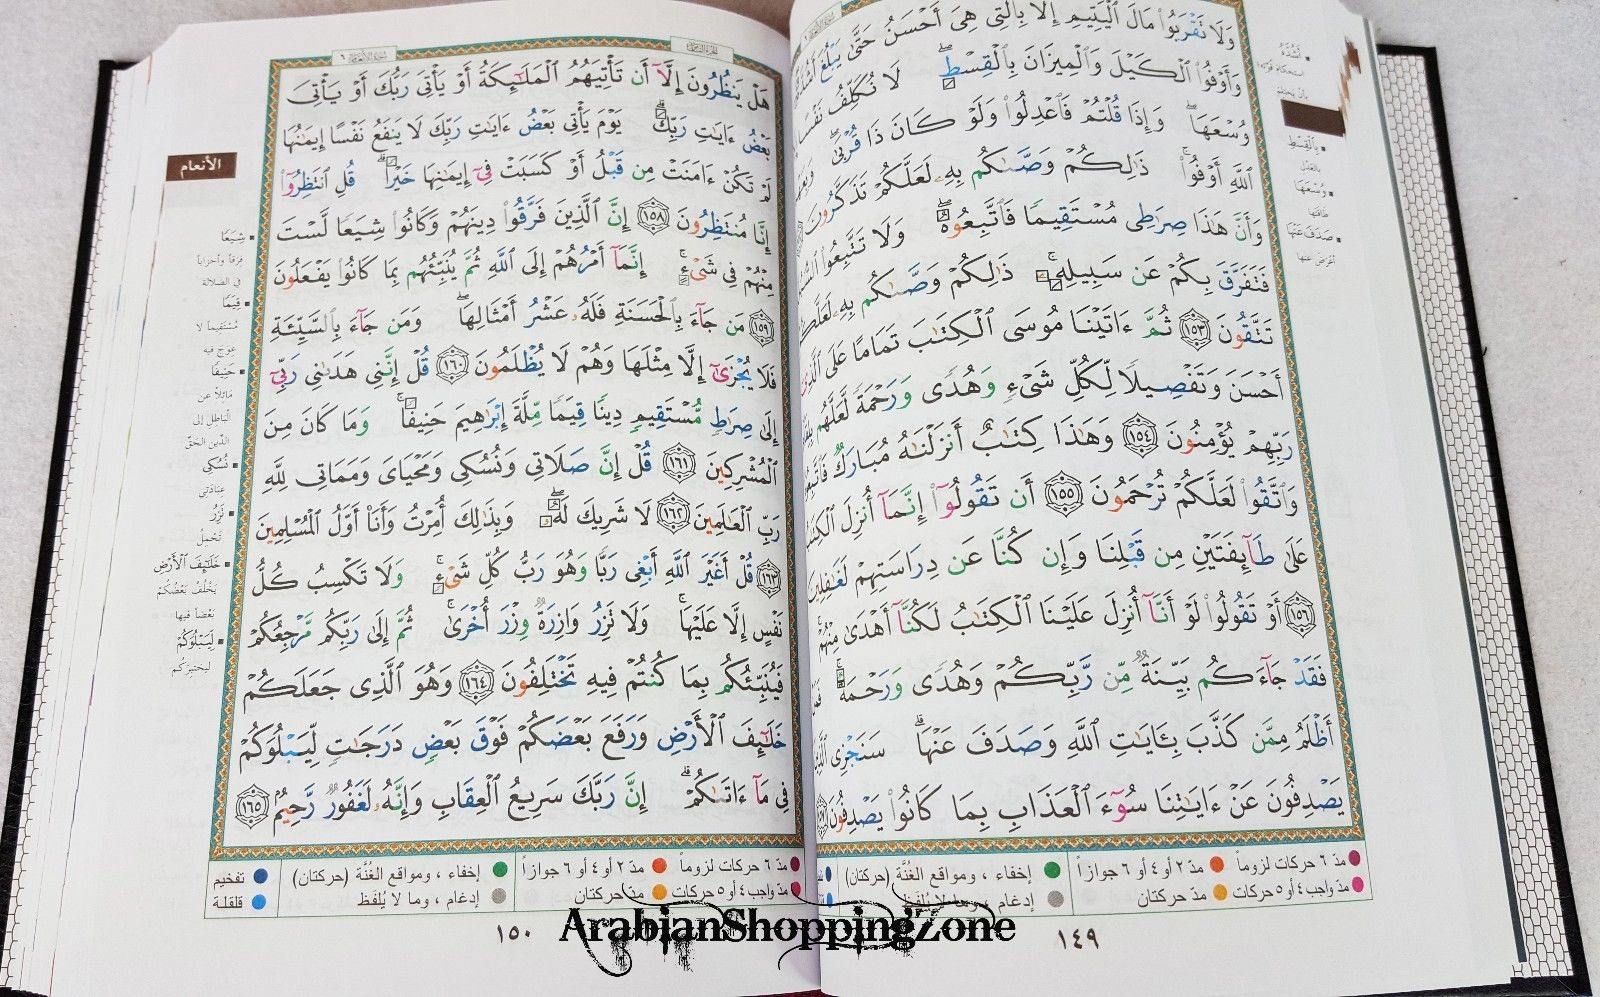 وَلَا تَقْرَبُوا۟ مَالَ ٱلْيَتِيمِ إِلَّا بِٱلَّتِى هِىَ أَحْسَنُ حَتَّىٰ يَبْلُغَ
وَأَوْفُوا۟ ٱلْكَيْلَ وَٱلْمِيزَانَ بِٱلْقِسْطِۖ لَا نُكَلِّفُ نَفْسًا
وُسْعَهَاۖ وَإِذَا قُلْتُمْ فَٱعْدِلُوا۟ وَلَوْ كَانَ ذَا قُرْبَىٰۖ
ٱللَّهِ أَوْفُوا۟ۚ ذَٰلِكُمْ وَصَّىٰكُم بِهِۦ لَعَلَّكُمْ تَذَكَّرُونَ
وَأَنَّ هَٰذَا صِرَٰطِى مُسْتَقِيمًا فَٱتَّبِعُوهُۖ وَلَا تَتَّبِعُوا۟
فَتَفَرَّقَ بِكُمْ عَن سَبِيلِهِۦۚ ذَٰلِكُمْ وَصَّىٰكُم بِهِۦ
تَتَّقُونَ ١٥٣ ثُمَّ ءَاتَيْنَا مُوسَى ٱلْكِتَٰبَ تَمَامًا عَلَى
أَحْسَنَ وَتَفْصِيلًا لِّكُلِّ شَىْءٍ وَهُدًى وَرَحْمَةً لَّعَلَّهُم
رَبِّهِمْ يُؤْمِنُونَ ١٥٤ وَهَٰذَا كِتَٰبٌ أَنزَلْنَٰهُ مُبَارَكٌ
وَٱتَّقُوا۟ لَعَلَّكُمْ تُرْحَمُونَ ١٥٥ أَن تَقُولُوٓا۟ إِنَّمَآ أُنزِلَ
عَلَىٰ طَآئِفَتَيْنِ مِن قَبْلِنَا وَإِن كُنَّا عَن دِرَاسَتِهِمْ لَغَٰفِلِينَ
١٥٦ أَوْ تَقُولُوا۟ لَوْ أَنَّآ أُنزِلَ عَلَيْنَا ٱلْكِتَٰبُ لَكُنَّآ أَهْدَىٰ مِنْهُمْۚ
فَقَدْ جَآءَكُم بَيِّنَةٌ مِّن رَّبِّكُمْ وَهُدًى وَرَحْمَةٌۚ
أَظْلَمُ مِمَّن كَذَّبَ بِـَٔايَٰتِ ٱللَّهِ وَصَدَفَ عَنْهَاۗ سَنَجْزِى
يَصْدِفُونَ عَنْ ءَايَٰتِنَا سُوٓءَ ٱلْعَذَابِ بِمَا كَانُوا۟ يَصْدِفُونَ
بِٱلْقِسْطِ
بالعدل
وُسْعَهَا
طاقتها
صَدَفَ عَنْهَا
أعرض عنها
مدّ ٦ حركات لزوماً مدّ ٢ أو ٤ أو ٦ جوازاً إخفاء، ومواقع الغُنَّة (حركتان)
مدّ واجب ٤ أو ٥ حركات مدّ حركتان إدغام، وما لا يُلفَظ
١٤٩
هَلْ يَنظُرُونَ إِلَّآ أَن تَأْتِيَهُمُ ٱلْمَلَٰٓئِكَةُ أَوْ يَأْتِىَ رَبُّكَ أَوْ يَأْتِىَ
بَعْضُ ءَايَٰتِ رَبِّكَۗ يَوْمَ يَأْتِى بَعْضُ ءَايَٰتِ رَبِّكَ لَا يَنفَعُ نَفْسًا إِيمَٰنُهَا
لَمْ تَكُنْ ءَامَنَتْ مِن قَبْلُ أَوْ كَسَبَتْ فِىٓ إِيمَٰنِهَا خَيْرًاۗ قُلِ ٱنتَظِرُوٓا۟
إِنَّا مُنتَظِرُونَ ١٥٨ إِنَّ ٱلَّذِينَ فَرَّقُوا۟ دِينَهُمْ وَكَانُوا۟ شِيَعًا لَّسْتَ
مِنْهُمْ فِى شَىْءٍۚ إِنَّمَآ أَمْرُهُمْ إِلَى ٱللَّهِ ثُمَّ يُنَبِّئُهُم بِمَا كَانُوا۟ يَفْعَلُونَ
١٥٩ مَن جَآءَ بِٱلْحَسَنَةِ فَلَهُۥ عَشْرُ أَمْثَالِهَاۖ وَمَن جَآءَ بِٱلسَّيِّئَةِ
فَلَا يُجْزَىٰٓ إِلَّا مِثْلَهَا وَهُمْ لَا يُظْلَمُونَ ١٦٠ قُلْ إِنَّنِى هَدَىٰنِى رَبِّىٓ
إِلَىٰ صِرَٰطٍ مُّسْتَقِيمٍ دِينًا قِيَمًا مِّلَّةَ إِبْرَٰهِيمَ حَنِيفًاۚ وَمَا كَانَ مِنَ
ٱلْمُشْرِكِينَ ١٦١ قُلْ إِنَّ صَلَاتِى وَنُسُكِى وَمَحْيَاىَ وَمَمَاتِى لِلَّهِ
رَبِّ ٱلْعَٰلَمِينَ ١٦٢ لَا شَرِيكَ لَهُۥۖ وَبِذَٰلِكَ أُمِرْتُ وَأَنَا۠ أَوَّلُ ٱلْمُسْلِمِينَ
١٦٣ قُلْ أَغَيْرَ ٱللَّهِ أَبْغِى رَبًّا وَهُوَ رَبُّ كُلِّ شَىْءٍۚ وَلَا تَكْسِبُ كُلُّ
نَفْسٍ إِلَّا عَلَيْهَاۚ وَلَا تَزِرُ وَازِرَةٌ وِزْرَ أُخْرَىٰۚ ثُمَّ إِلَىٰ رَبِّكُم مَّرْجِعُكُمْ
فَيُنَبِّئُكُم بِمَا كُنتُمْ فِيهِ تَخْتَلِفُونَ ١٦٤ وَهُوَ ٱلَّذِى جَعَلَكُمْ
خَلَٰٓئِفَ ٱلْأَرْضِ وَرَفَعَ بَعْضَكُمْ فَوْقَ بَعْضٍ دَرَجَٰتٍ لِّيَبْلُوَكُمْ
فِى مَآ ءَاتَىٰكُمْۗ إِنَّ رَبَّكَ سَرِيعُ ٱلْعِقَابِ وَإِنَّهُۥ لَغَفُورٌ رَّحِيمٌۢ ١٦٥
الأنعام
شِيَعًا
فرقاً وأحزاباً
في الضلالة
قِيَمًا
مستقيماً لا
عوج فيه
حَنِيفًا
مائلاً عن
الباطل إلى
الدّين الحقّ
نُسُكِى
عبادتي
تَزِرُ
تحمل
خَلَٰٓئِفَ ٱلْأَرْضِ
يخلف بعضكم
بعضاً فيها
لِّيَبْلُوَكُمْ
ليختبركم
مدّ ٦ حركات لزوماً مدّ ٢ أو ٤ أو ٦ جوازاً إخفاء، ومواقع الغُنَّة (حركتان) تفخيم
مدّ واجب ٤ أو ٥ حركات مدّ حركتان إدغام، وما لا يُلفَظ قلقلة
١٥٠
ArabianShoppingZone